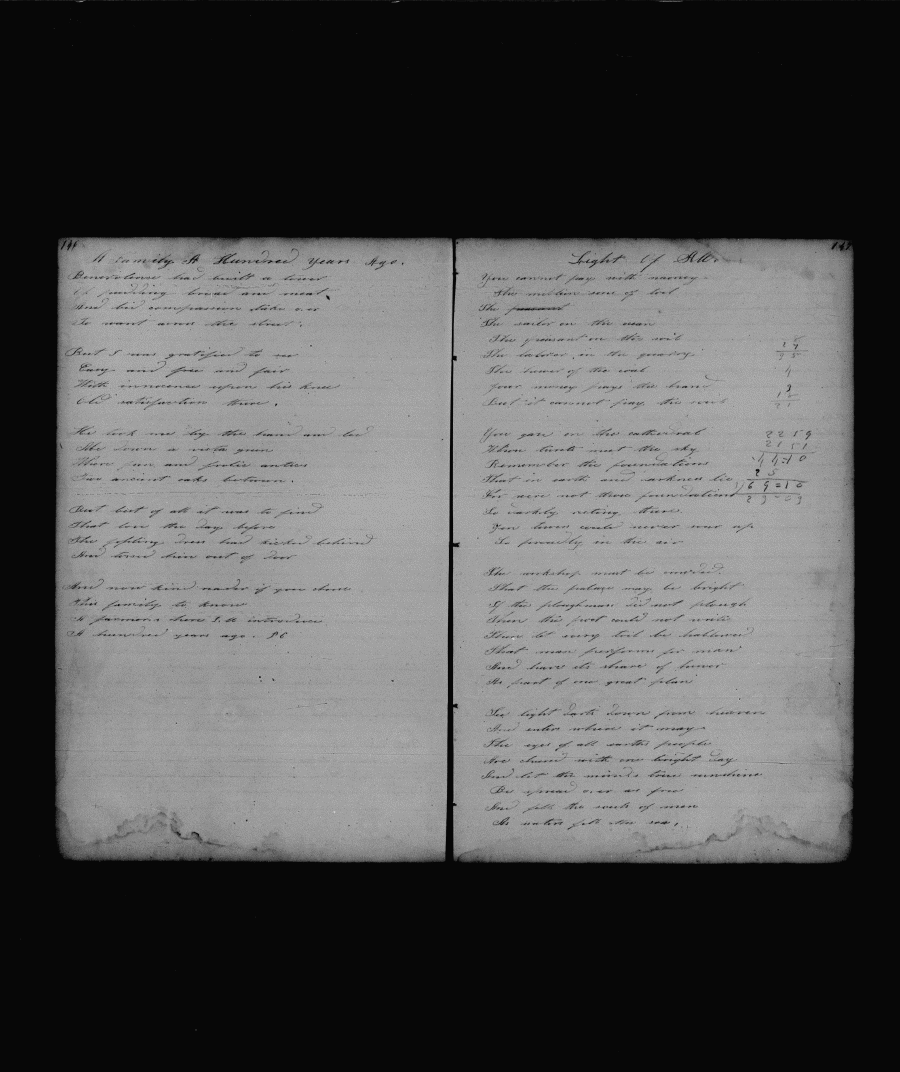 A Family A Hundred Years Ago.
Benevolence had built a tower
Of pudding bread and meat
And bid compassion take it o'er
To want across the street.
But I was gratified to see
Easy and free and fair
With innocence upon his knee
Old satisfaction there.
He took me by the hand and led
Me down a vista green
Where fun and frolic antics
Two ancient oaks between.
But best of all it was to find
That love the day before
The fopling dress had kicked behind
And tossed him out of door
And now kind reader if you chose
This family to know
A farmons here I'll introduce
A hundred years ago.
Light Of All.
You cannot pay with money
The million sons of toil
The peasant
The sailor on the ocean
The peasant on the soil
The laborer in the quarry
The hewer of the coal
Your money pays the hand
But it cannot pay the soul
You gaze on the cathedral
Whose turrets meet the sky
Remember the foundations
That in earth and darkness lie
For were not those foundations
So darkly resting there
Yon towers could never soar up
So proudly in the air
The workshop must be crowded
That the palace may be bright
If the ploughman did not plough
Then the poet could not write
Then let every toil be hallowed
That man performs for man
And have its share of honor
As part of one great plan
See light darts down from heaven
And enters where it may
The eyes of all earths people
Are cheered with one bright day
And let the minds true sunshine
Be spread o'er as free
And fill the souls of men
As waters fill the sea.